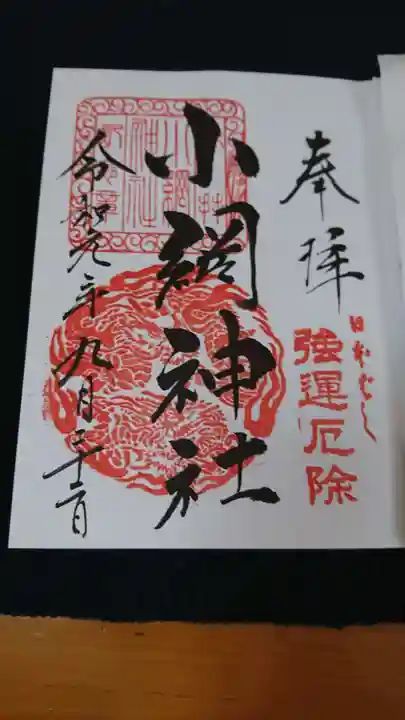 奉拝
日本ばし
強運厄除
小網神社
令和元年九月二十三日